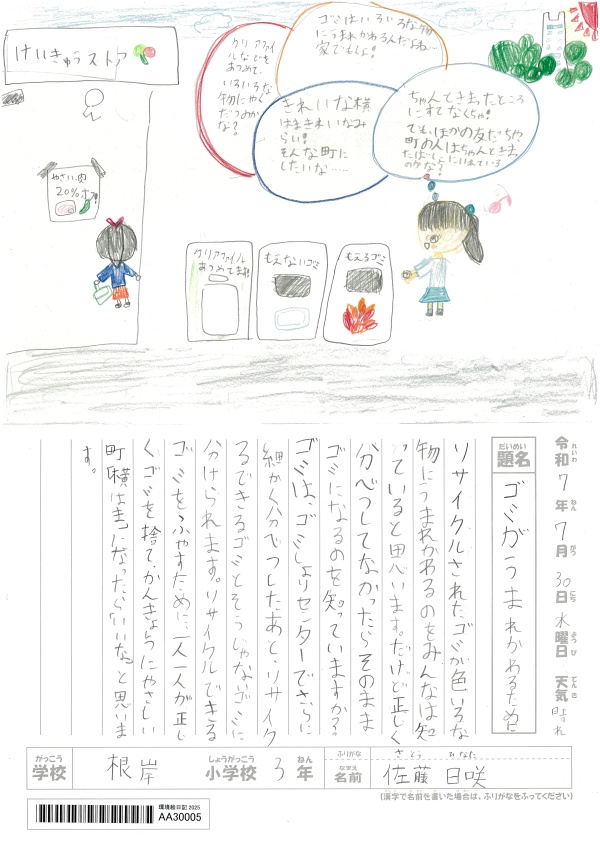 けいきゅうストア
やさい、肉
20%オフ!
クリアファイ
ルなどを
あつめて、
いろいろな
物にやく
だつのか
な?
ゴミはいろいろな物
にうまれかわるんだよね…
家でもしよ!
きれいな横
はまきれいなみ
らい!
そんな町に
したいな……
ちゃんときまったところ
にすてなくちゃ!
でも、ほかの友だちや、
町の人はちゃんときまっ
たばしょにいれている
のかな?
クリアファイル
あつめてます!
もえないゴミ
もえるゴミ
令和7年7月30日水曜日 天気 晴れ
れいわ ねん がつ にち ようび てんき
だいめい
題名 ゴミがうまれかわるために
リサイクルされたゴミが色いろな
物にうまれかわるのをみんなは知
っていると思います。だけど正しく
分べつしてなかったらそのまま
ゴミになるのを知っていますか?
ゴミは、ゴミしょりセンターでさらに
細かく分べつしたあと、リサイク
るできるゴミとそうじゃないゴミに
分けられます。リサイクルできる
ゴミをふやすために、一人一人が正し
くゴミを捨て、かんきょうにやさしい
町「横はま」になったらいいなと思いま
す。
がっこう しょうがっこう ねん
学校 根岸 小学校 3年
ふりがな さとう ひなた
なまえ
名前 佐藤 日咲
(漢字で名前を書いた場合は、ふりがなをふってください)
環境絵日記 2025
AA30005